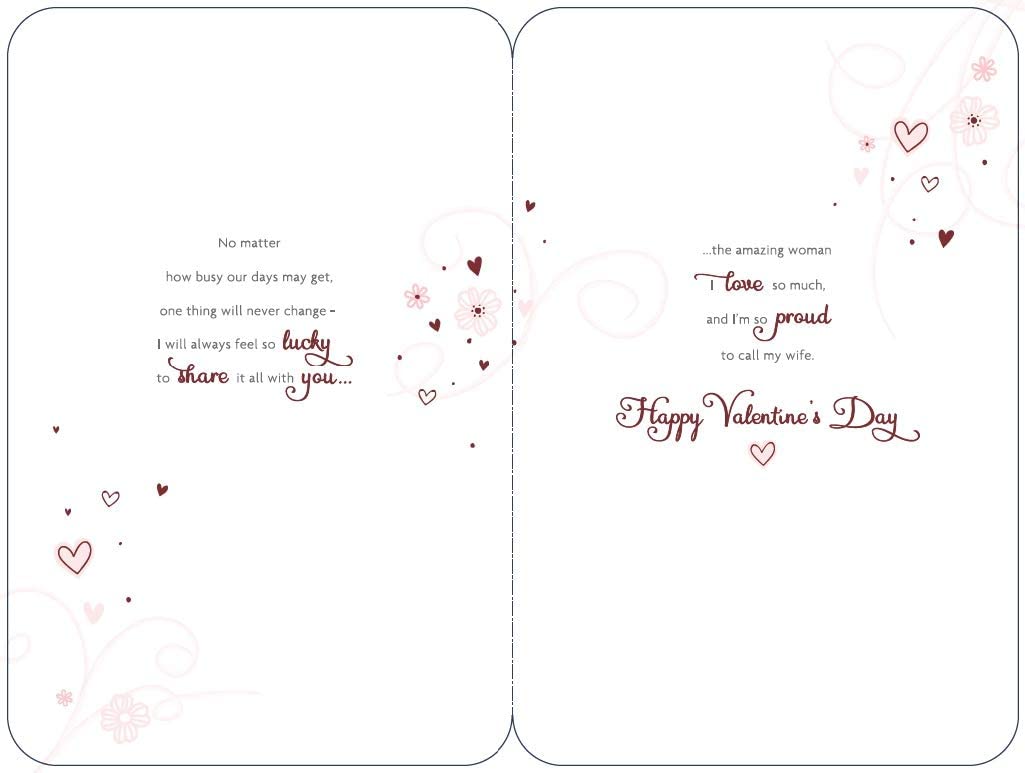 No matter
how busy our days may get,
one thing will never change –
I will always feel so lucky
to share it all with you...
...the amazing woman
I love so much,
and I'm so proud
to call my wife.
Happy Valentine's Day